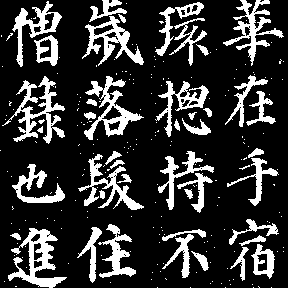 華在手宿
環揔持不
歲落髮住
僧録也進